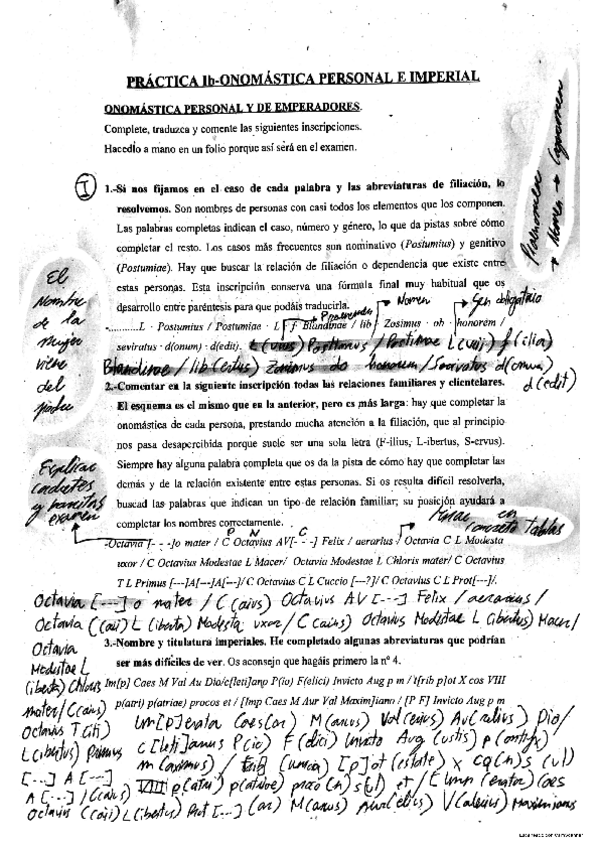 PRÁCTICA Ib-ONOMÁSTICA PERSONAL E IMPERIAL
ONOMÁSTICA PERSONAL Y DE EMPERADORES.
Complete, traduzca y comente las siguientes inscripciones.
Hacedlo a mano en un folio porque así será en el examen.
Praenomen
→ Nomen → Cognomen
I
1.-Si nos fijamos en el caso de cada palabra y las abreviaturas de filiación, lo
resolvemos. Son nombres de personas con casi todos los elementos que los componen.
Las palabras completas indican el caso, número y género, lo que da pistas sobre cómo
completar el resto. Los casos más frecuentes son nominativo (Postumius) y genitivo
(Postumiae). Hay que buscar la relación de filiación o dependencia que existe entre
estas personas. Esta inscripción conserva una fórmula final muy habitual que os
desarrollo entre paréntesis para que podáis traducirla.
El
Nombre
de la
mujer
viene
del
padre
Praenomen
Nomen
Gen
-..........L · Postumius / Postumiae · L · f · Blandinae / lib · Zosimus · ob · honorem /
seviratus · d(onum) · d(edit).
f(ilia)
Blandinae / lib(ertus) Zosimus honorem /
d(edit)
2.-Comentar en la siguiente inscripción todas las relaciones familiares y clientelares.
El esquema es el mismo que en la anterior, pero es más larga: hay que completar la
onomástica de cada persona, prestando mucha atención a la filiación, que al principio
nos pasa desapercibida porque suele ser una sola letra (F-ilius, L-ibertus, S-ervus).
Siempre hay alguna palabra completa que os da la pista de cómo hay que completar las
demás y de la relación existente entre estas personas. Si os resulta difícil resolverla,
buscad las palabras que indican un tipo de relación familiar; su posición ayudará a
completar los nombres correctamente.
Explicar
examen
Mirar en
tablas
P N C
-Octavia [- - -]o mater / C Octavius AV[- - -] Felix / aerarius / Octavia C L Modesta
uxor / C Octavius Modestae L Macer/ Octavia Modestae L Chloris mater/ C Octavius
T L Primus [---]A[---]A[---]/ C Octavius C L Cuccio [---?]/ C Octavius C L Prot[---]/.
Octavia [---] o mater / C(aius) Octavius AV [---] Felix / aerarius /
Octavia C(aii) L(iberta) Modesta uxor / C(aius) Octavius Modestae L(ibertus) Macer/
3.-Nombre y titulatura imperiales. He completado algunas abreviaturas que podrían
ser más difíciles de ver. Os aconsejo que hagáis primero la nº 4.
Im[p] Caes M Val Au Dio/c[leti]ano P(io) F(elici) Invicto Aug p m / t[rib p]ot X cos VIII
p(atri) p(atriae) procos et / [Imp Caes M Aur Val Maxim]iano / [P F] Invicto Aug p m
Octavia
Modestae L
(iberta) Chloris
mater/ C(aius)
Octavius T(iti)
L(ibertus) Primus
[---] A [---]
A [---] / C(aius)
Octavius C(aii) L(ibertus) Prot [---]
M(arcus) Val(erius) Dio/
P(io) F(elici) Invicto Aug(ustis)
m(aximus) / [p]ot(estate) X
VIII et /
M(arcus) Aur(elius) V(alerius) Maximianus